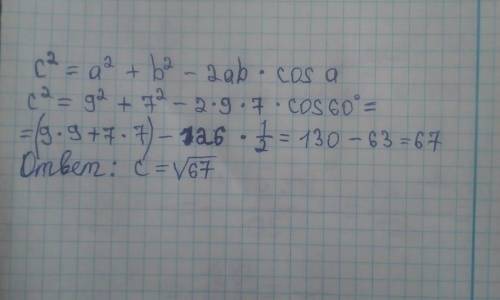 c² = a² + b² - 2ab · cos a
c² = 9² + 7² - 2·9·7 · cos60° =
=(9·9+7·7) - 126 · 1/2 = 130 - 63 = 67
Ответ: c = √67